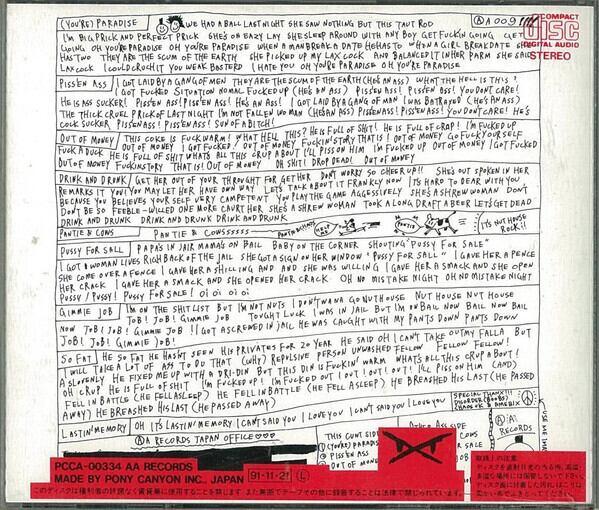 (YOU'RE) PARADISE WE HAD A BALL LAST NIGHT SHE SAW NOTHING BUT THIS TAUT ROD AA 009
COMPACT
DISC
DIGITAL AUDIO
STEREO
I'M BIG PRICK AND PERFECT PRICK SHE'S OH EAZY LAY SHE SLEEP AROUND WITH ANY BOY GET FUCKIN GOING GET
GOING OH YOU'RE PARADISE OH YOU'RE PARADISE WHEN A MAN BREAK A DATE HE HAS TO WHEN A GIRL BREAK DATE SHE
HAS TWO THEY ARE THE SCUM OF THE EARTH SHE PICKED UP MY LAX COCK AND BALANCED IT IN HER PARM SHE SAID
LAX COCK I COULD CROHIT YOU WEAK BOSTERD I HATE YOU OH YOU'RE PARADISE OH YOU'RE PARADISE
PISS'EN ASS I GOT LAID BY A GANG OF MEN THEY ARE THE SCUM OF THE EARTH (HE'S AN ASS) WHAT THE HELL IS THIS?
I GOT FUCKED SITUATION NOMAL FUCKED UP (HE'S AN ASS) PISS'EN ASS! PISS'EN ASS! YOU DON'T CARE!
HE IS ASS SUCKER! PISS'EN ASS! PISS'EN ASS! HE'S AN ASS! I GOT LAID BY A GANG OF MAN I WAS BATRAYED (HE'S AN ASS)
THE THICK CRUEL PRICK OF LAST NIGHT I'M NOT FALLEN WOMAN (HE'S AN ASS) PISS'EN ASS! PISS'EN ASS! YOU DON'T CARE! HE'S
COCK SUCKER PISS'EN ASS! PISS'EN ASS! SON OF A BITCH!
OUT OF MONEY THIS COKE IS FUCK WARM! WHAT HELL THIS? HE IS FULL OF SHIT! HE IS FULL OF CROP! I'M FUCKED UP
OUT OF MONEY I GOT FUCKED! OUT OF MONEY FUCKIN' STORY THAT IS! OUT OF MONEY GO FUCK YOURSELF
FUCK A DUCK HE IS FULL OF SHIT WHATS ALL THIS CRUP ABOUT I'LL PISS ON HIM I'M FUCKED UP OUT OF MONEY I GOT FUCKED
OUT OF MONEY FUCKIN STORY THAT IS! OUT OF MONEY OH SHIT! DROP DEAD! OUT OF MONEY
DRINK AND DRUNK GET HER OUT OF YOUR THROUGHT FOR GET HER DON'T WORRY SO CHEER UP!! SHE'S OUT SPOKEN IN HER
REMARKS IT YOU! YOU MAY LET HER HAVE OWN WAY LET'S TALK ABOUT IT FRANKY NOW IT'S HARD TO DEAR WITH YOU
BECAUSE YOU BELIEVES YOUR SELF VERY COMPETENT YOU PLAY THE GAME AGGRESSIVELY SHE'S A SHREW WOMAN DON'T
DON'T BE SO FEEBLE-WILLED ONE MORE CAURT HER SHE'S A SHREW WOMAN TOOK A LONG DRAFT A BEER LET'S GET DEAD
DRINK AND DRUNK DRINK AND DRUNK DRINK AND DRUNK
PANTIE & CONS PANTIE & COWSSSSSS IT'S NUT HOUSE
ROCK!!
PUSSY FOR SALL PAPA'S IN JAIR MAMA'S ON BAIL BABY ON THE CORNER SHOUTING "PUSSY FOR SALE"
I GOT A WOMAN LIVES RICH BACK OF THE JAIL SHE GOT A SIGN ON HER WINDOW "PUSSY FOR SALL" I GAVE HER A PENCE
SHE COME OVER A FENCE I GAVE HER A SHILLING AND AND SHE WAS WILLING I GAVE HER A SMACK AND SHE OPEN
HER CRACK I GAVE HER A SMACK AND SHE OPENED HER CRACK OH NO MISTAKE NIGHT OH NO MISTAKE NIGHT
PUSSY / PUSSY! PUSSY FOR SALE! OI OI OI OI
GIMMIE JOB I'M ON THE SHIT LIST BUT I'M NOT NUTS I DON'T WANA GO NUT HOUSE NUT HOUSE NUT HOUSE
JOB! JOB! GIMMIE JOB TOUGHT LUCK I WAS IN JAIL BUT I'M ON BAIL NOW BAIL NOW BAIL
NOW JOB! JOB! GIMMIE JOB!! I GOT A SCREWED IN JAIL HE WAS CAUGHT WITH MY PANTS DOWN PANTS DOWN
JOB! JOB! GIMMIE JOB!
SO FAT HE SO FAT HE HASN'T SEEN HIS PRIVATES FOR 20 YEAR HE SAID OH I CAN'T TAKE OUT MY FALLA BUT
I WILL TAKE A LOT OF ASS TO DO THAT (WHY) REPULSIVE PERSON UNWASHED FELLOW FELLOW FELLOW!
A SLOVENLY HE FIXED ME UP WITH A DRI-DIN BUT THIS DIN IS FUCKIN' WARM WHATS ALL THIS CRUP ABOUT!
OH CRUP HE IS FULL OF SHIT I'M FUCKED UP! I'M FUCKED OUT! OUT! OUT! OUT! I'LL PISS ON HIM (AND)
FELL IN BATTLE (HE FELL ASLEEP) HE FELL IN BATTLE (HE FELL ASLEEP) HE BREASHED HIS LAST (HE PASSED
AWAY) HE BREASHED HIS LAST (HE PASSED AWAY)
LASTIN' MEMORY OH IT'S LASTIN' MEMORY I CAN'T SAID YOU I LOVE YOU I CAN'T SAID YOU I LOVE YOU
SPECIAL THANX!!!
AA RECORDS TAPAN OFFICE♡♡♡
THIS CUNT SIDE
(YOU'RE) PARADISE
PISS'EN ASS
OUT OF MONEY
ASS SIDE
FOR SALE
AA
RECORDS
PCCA-00334 AA RECORDS
MADE BY PONY CANYON INC., JAPAN 91・11・21 L
このディスクは権利者の許諾なく賃貸業に使用することを禁じます。また無断でテープその他に録音することは法律で禁じられています。
取扱上の注意